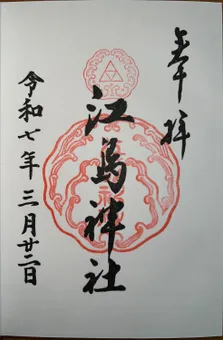 奉拝
江島神社
令和七年三月廿二日